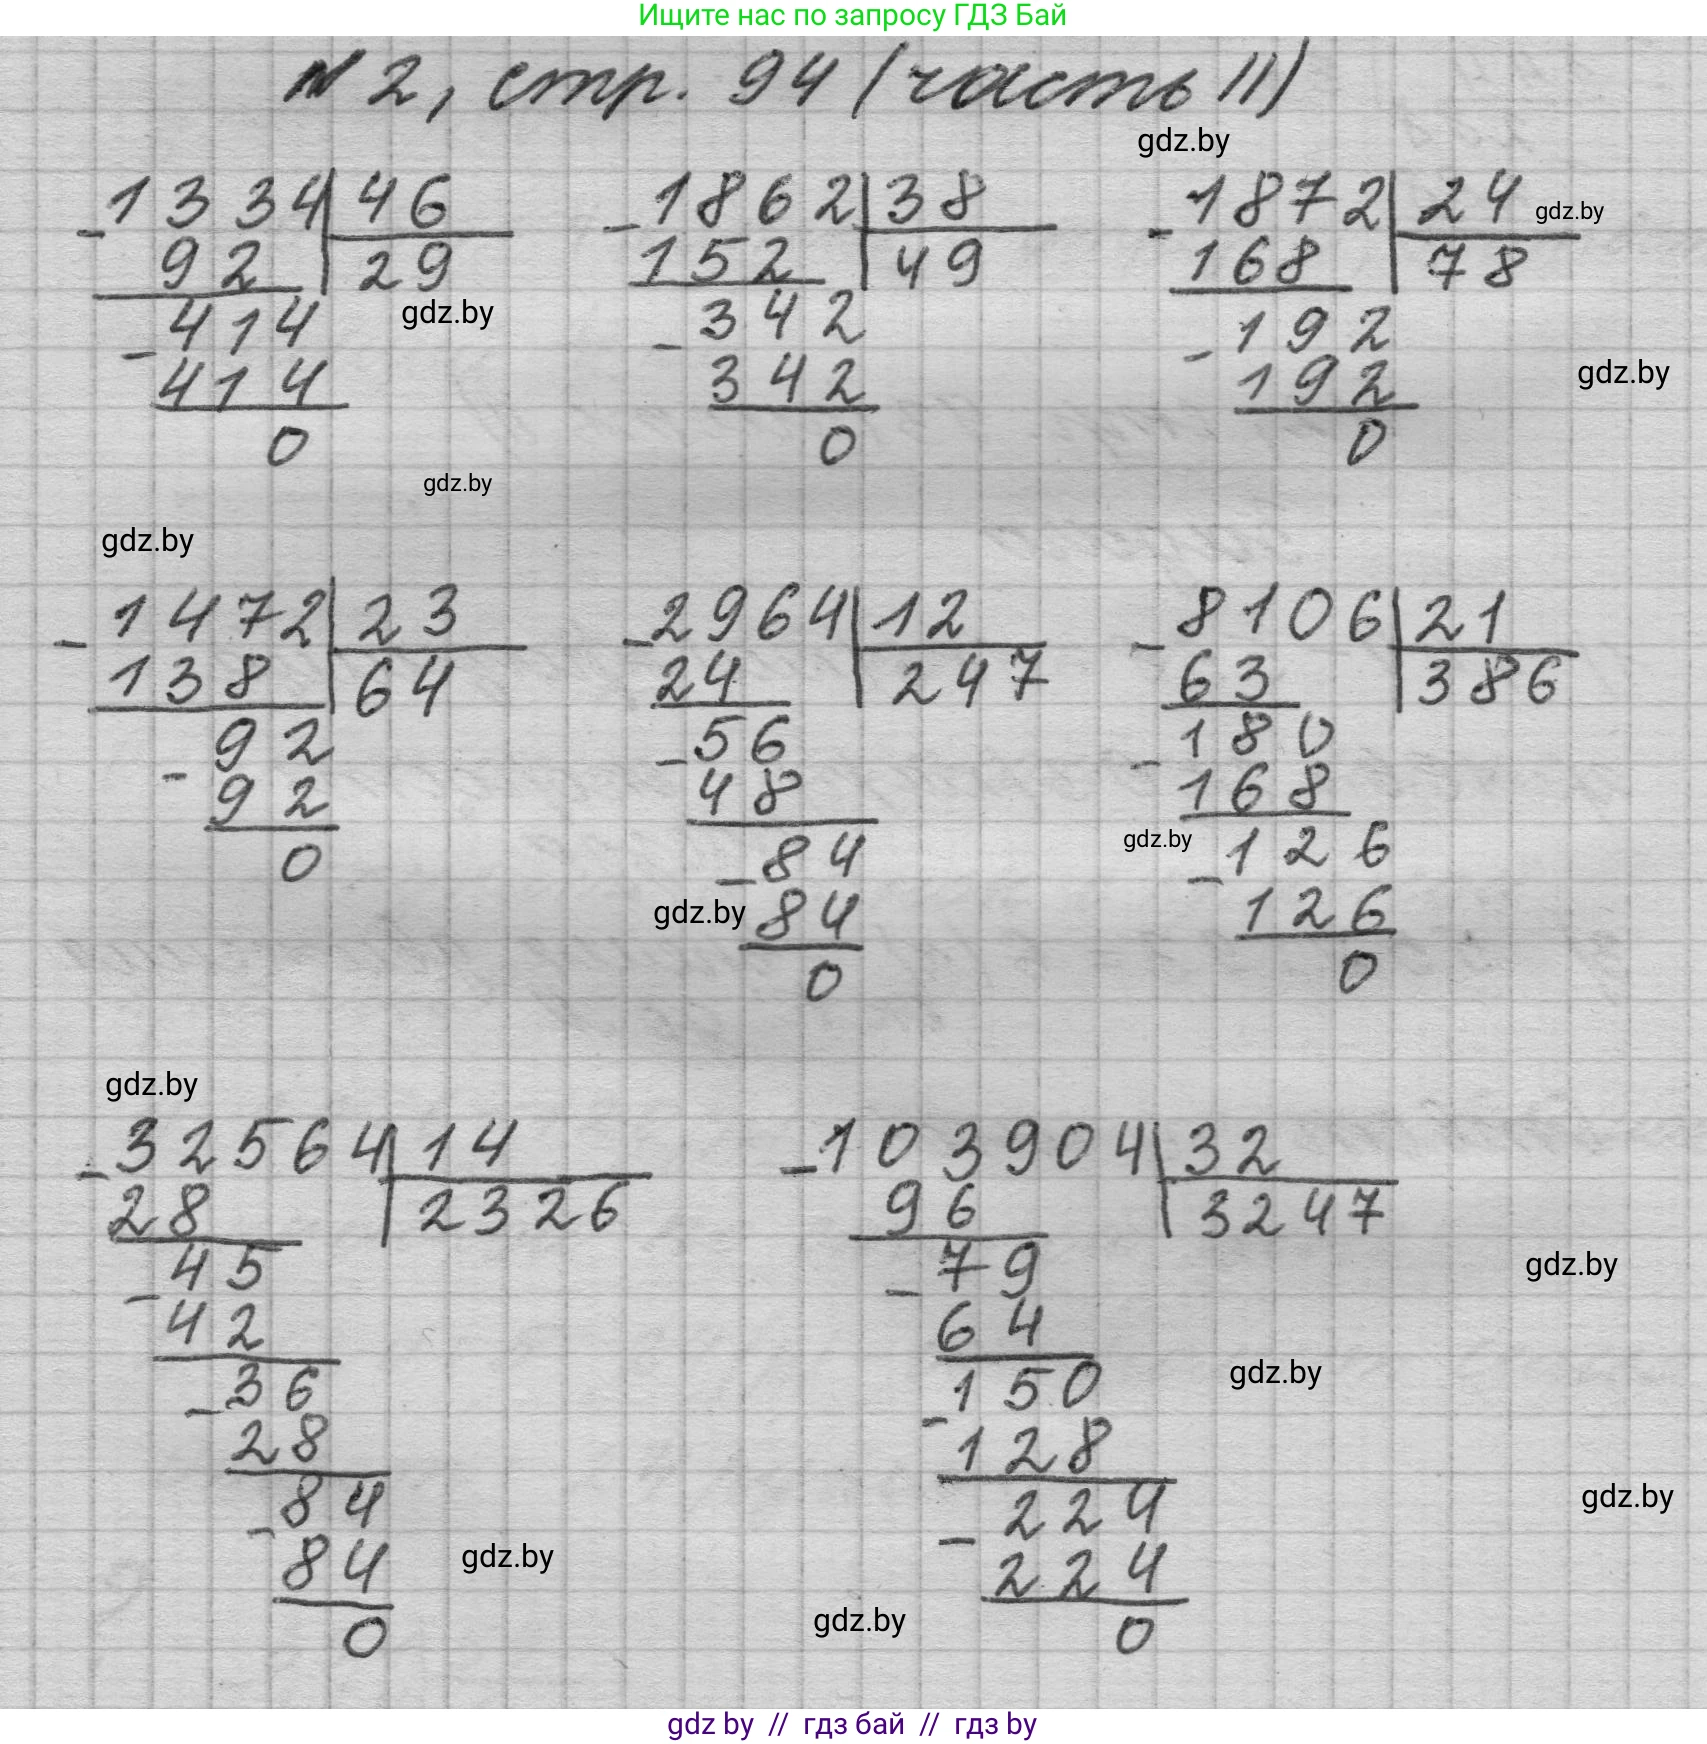 Ищите нас по запросу ГДЗ Бай
№ 2, стр. 94 (часть II)
gdz.by
- 1334 | 46
92 | 29
gdz.by
- 414
414
0
- 1862 | 38
152 | 49
- 342
342
0
- 1872 | 24
gdz.by
168 | 78
- 192
192
0
gdz.by
gdz.by
gdz.by
- 1472 | 23
138 | 64
- 92
92
0
- 2964 | 12
24 | 247
- 56
48
- 84
84
0
gdz.by
- 8106 | 21
63 | 386
- 180
168
gdz.by
- 126
126
0
gdz.by
- 32564 | 14
28 | 2326
- 45
42
- 36
28
- 84
84
0
gdz.by
- 103904 | 32
96 | 3247
- 79
64
- 150
128
- 224
224
0
gdz.by
gdz.by
gdz.by
gdz.by
gdz by // гдз бай // гдз by